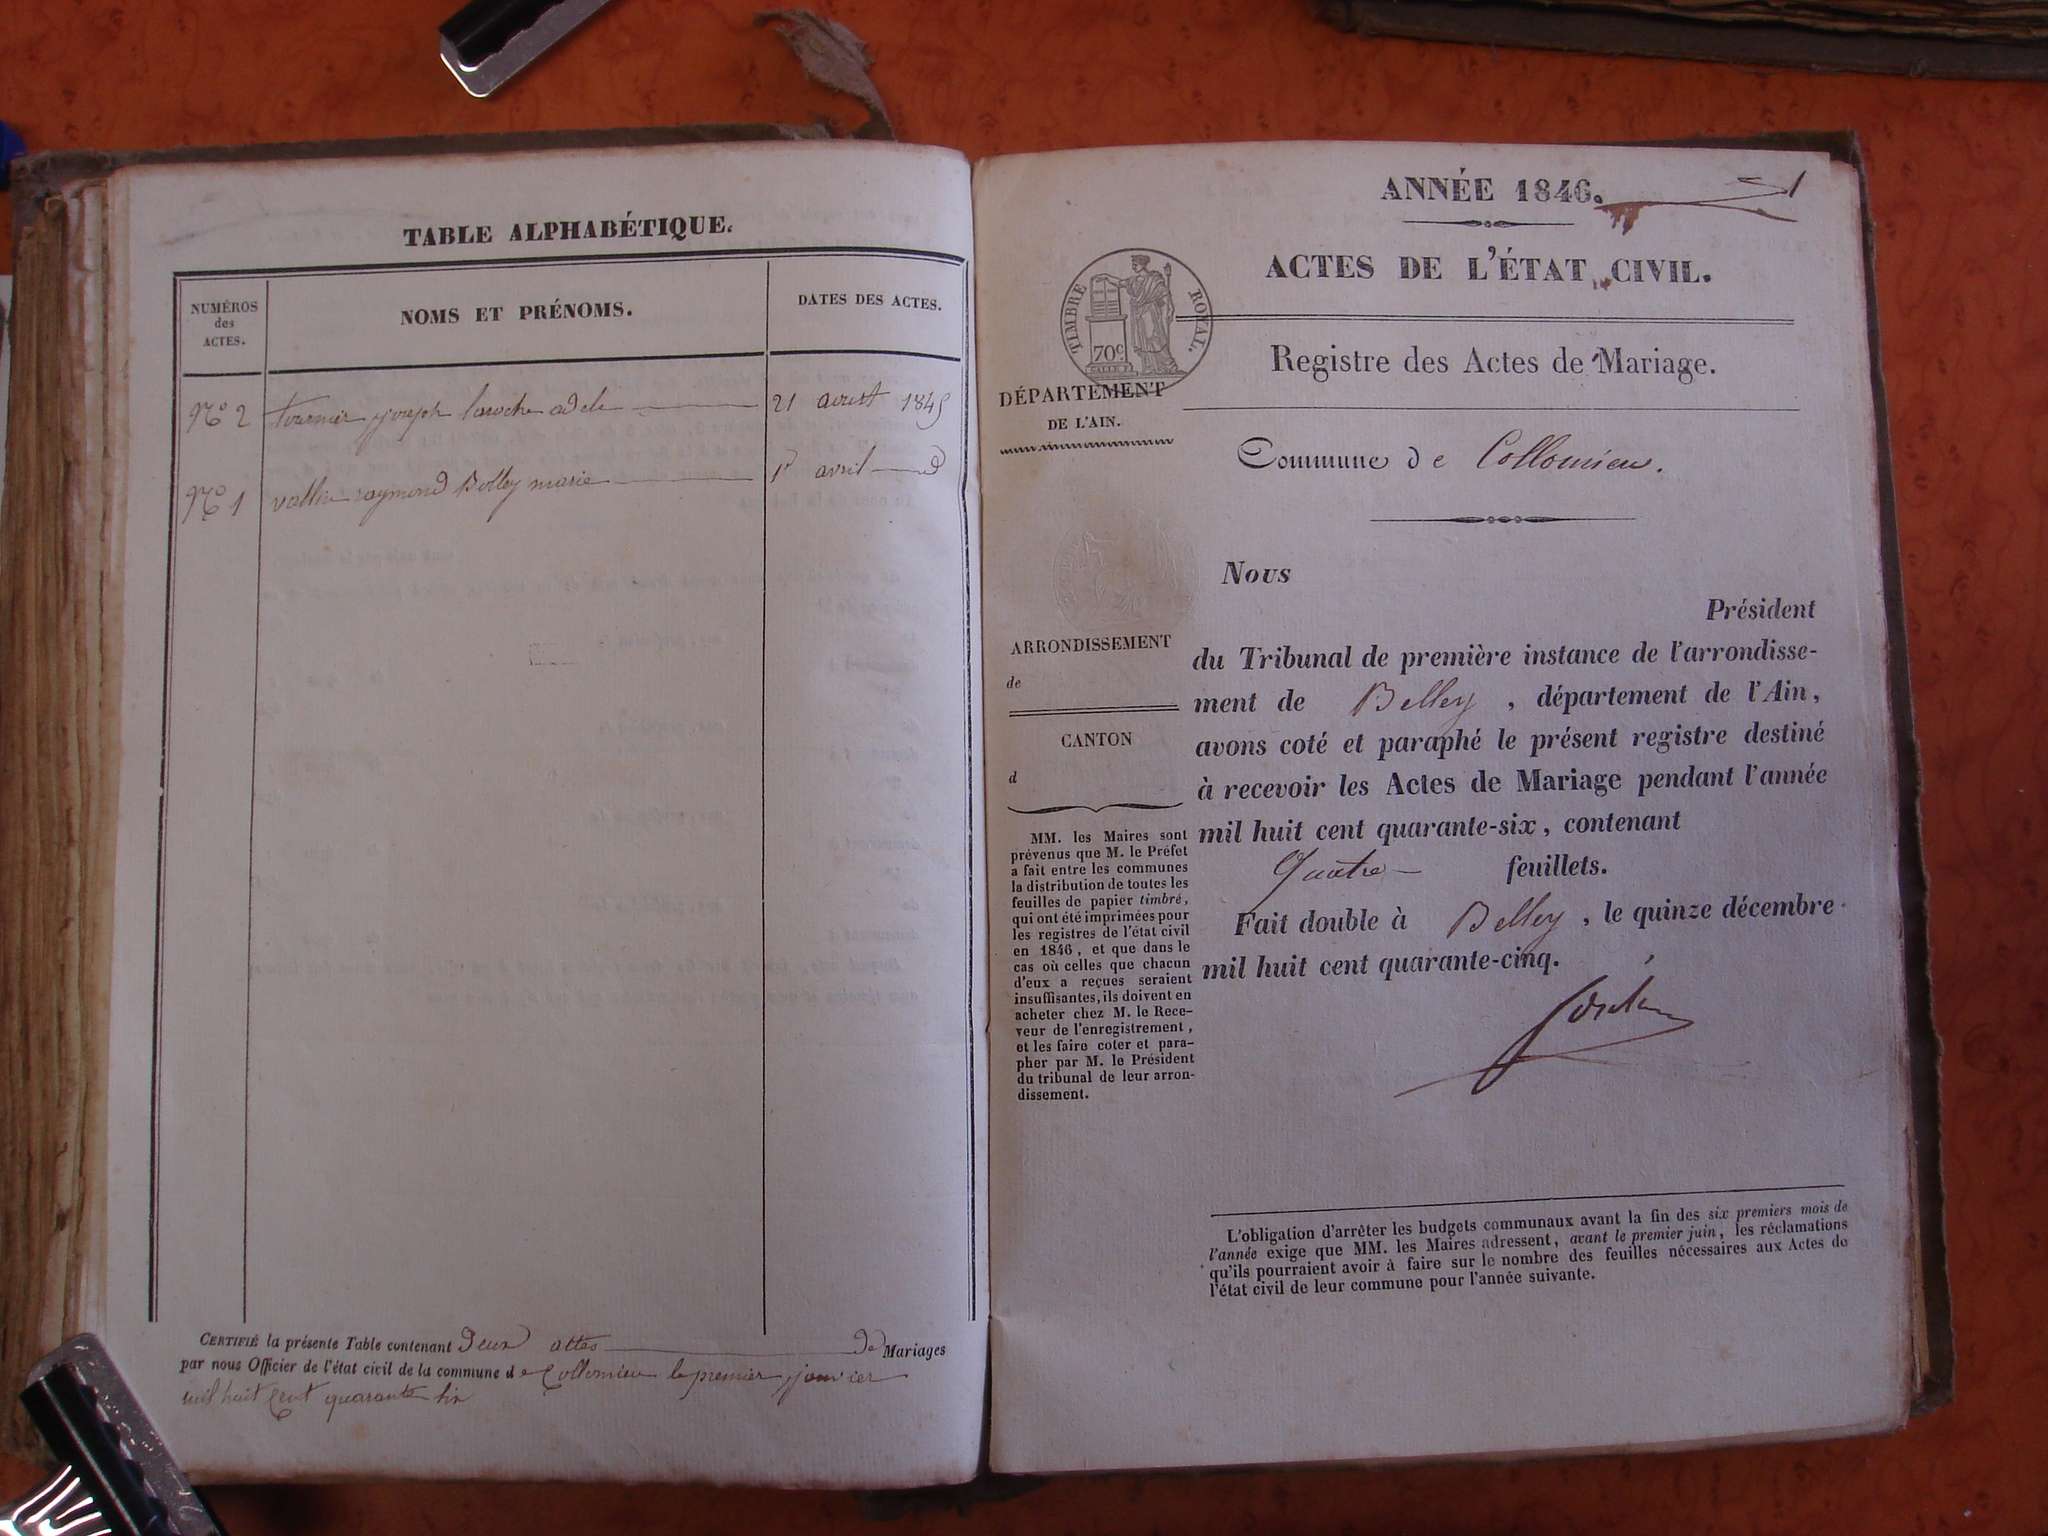 TABLE ALPHABÉTIQUE.
NUMÉROS
des
ACTES.
NOMS ET PRÉNOMS.
DATES DES ACTES.
No 2 tournier joseph laroche adele 21 aoust 1845
No 1 vallin raymond Bolley marie 1r avril d
CERTIFIÉ la présente Table contenant deux actes de Mariages
par nous Officier de l'état civil de la commune de Collomieu le premier janvier
mil huit cent quarante six
ANNÉE 1846. 1
ACTES DE L'ÉTAT CIVIL.
TIMBRE ROYAL.
70c
Registre des Actes de Mariage.
DÉPARTEMENT
DE L'AIN.
Commune de Collomieu.
ARRONDISSEMENT
de
CANTON
d
MM. les Maires sont
prévenus que M. le Préfet
a fait entre les communes
la distribution de toutes les
feuilles de papier timbré,
qui ont été imprimées pour
les registres de l'état civil
en 1846, et que dans le
cas où celles que chacun
d'eux a reçues seraient
insuffisantes, ils doivent en
acheter chez M. le Rece-
veur de l'enregistrement,
et les faire coter et para-
pher par M. le Président
du tribunal de leur arron-
dissement.
Nous
Président
du Tribunal de première instance de l'arrondisse-
ment de Belley, département de l'Ain,
avons coté et paraphé le présent registre destiné
à recevoir les Actes de Mariage pendant l'année
mil huit cent quarante-six, contenant
Quatre feuillets.
Fait double à Belley, le quinze décembre
mil huit cent quarante-cinq.
L'obligation d'arrêter les budgets communaux avant la fin des six premiers mois de
l'année exige que MM. les Maires adressent, avant le premier juin, les réclamations
qu'ils pourraient avoir à faire sur le nombre des feuilles nécessaires aux Actes de
l'état civil de leur commune pour l'année suivante.